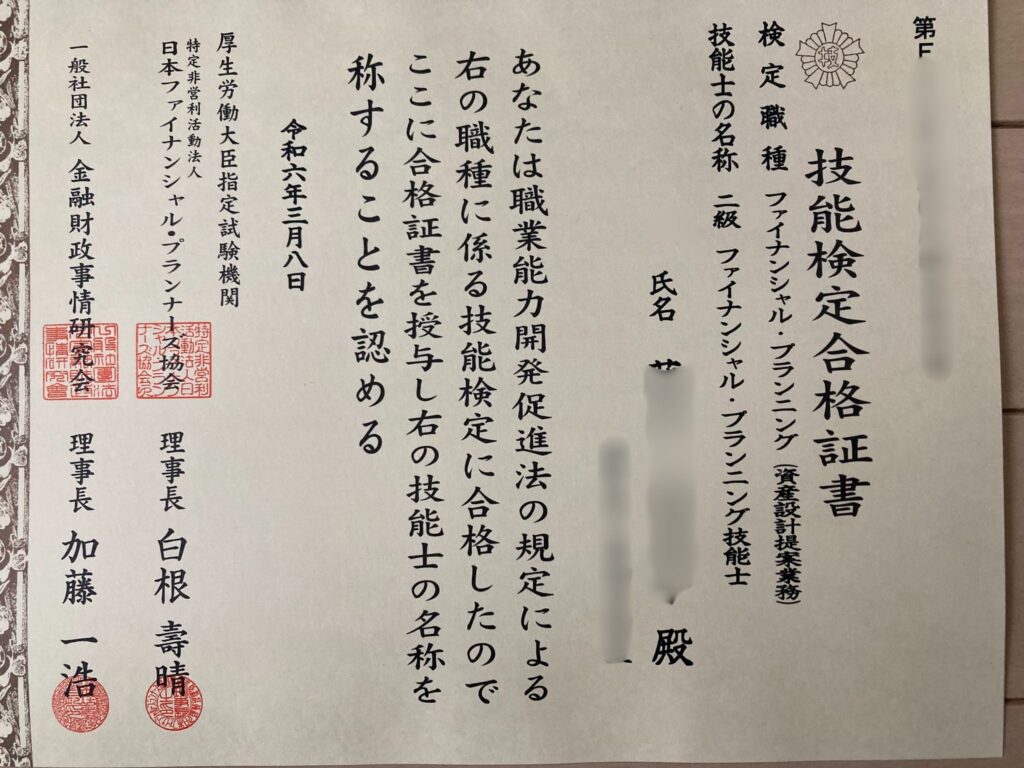 第F
技能検定合格証書
技
検定職種 ファイナンシャル・プランニング(資産設計提案業務)
技能士の名称 二級 ファイナンシャル・プランニング技能士
氏名
殿
あなたは職業能力開発促進法の規定による
右の職種に係る技能検定に合格したので
ここに合格証書を授与し右の技能士の名称を
称することを認める
令和六年三月八日
厚生労働大臣指定試験機関
特定非営利活動法人
日本ファイナンシャル・プランナーズ協会 理事長 白根 壽晴
一般社団法人 金融財政事情研究会 理事長 加藤 一浩